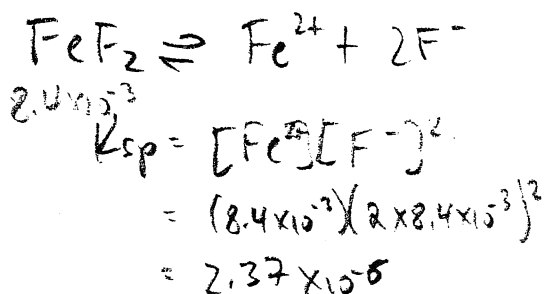 FeF₂ ⇌ Fe²⁺ + 2F⁻
8.4×10⁻³
Ksp = [Fe²⁺][F⁻]²
= (8.4×10⁻³)(2×8.4×10⁻³)²
= 2.37×10⁻⁶